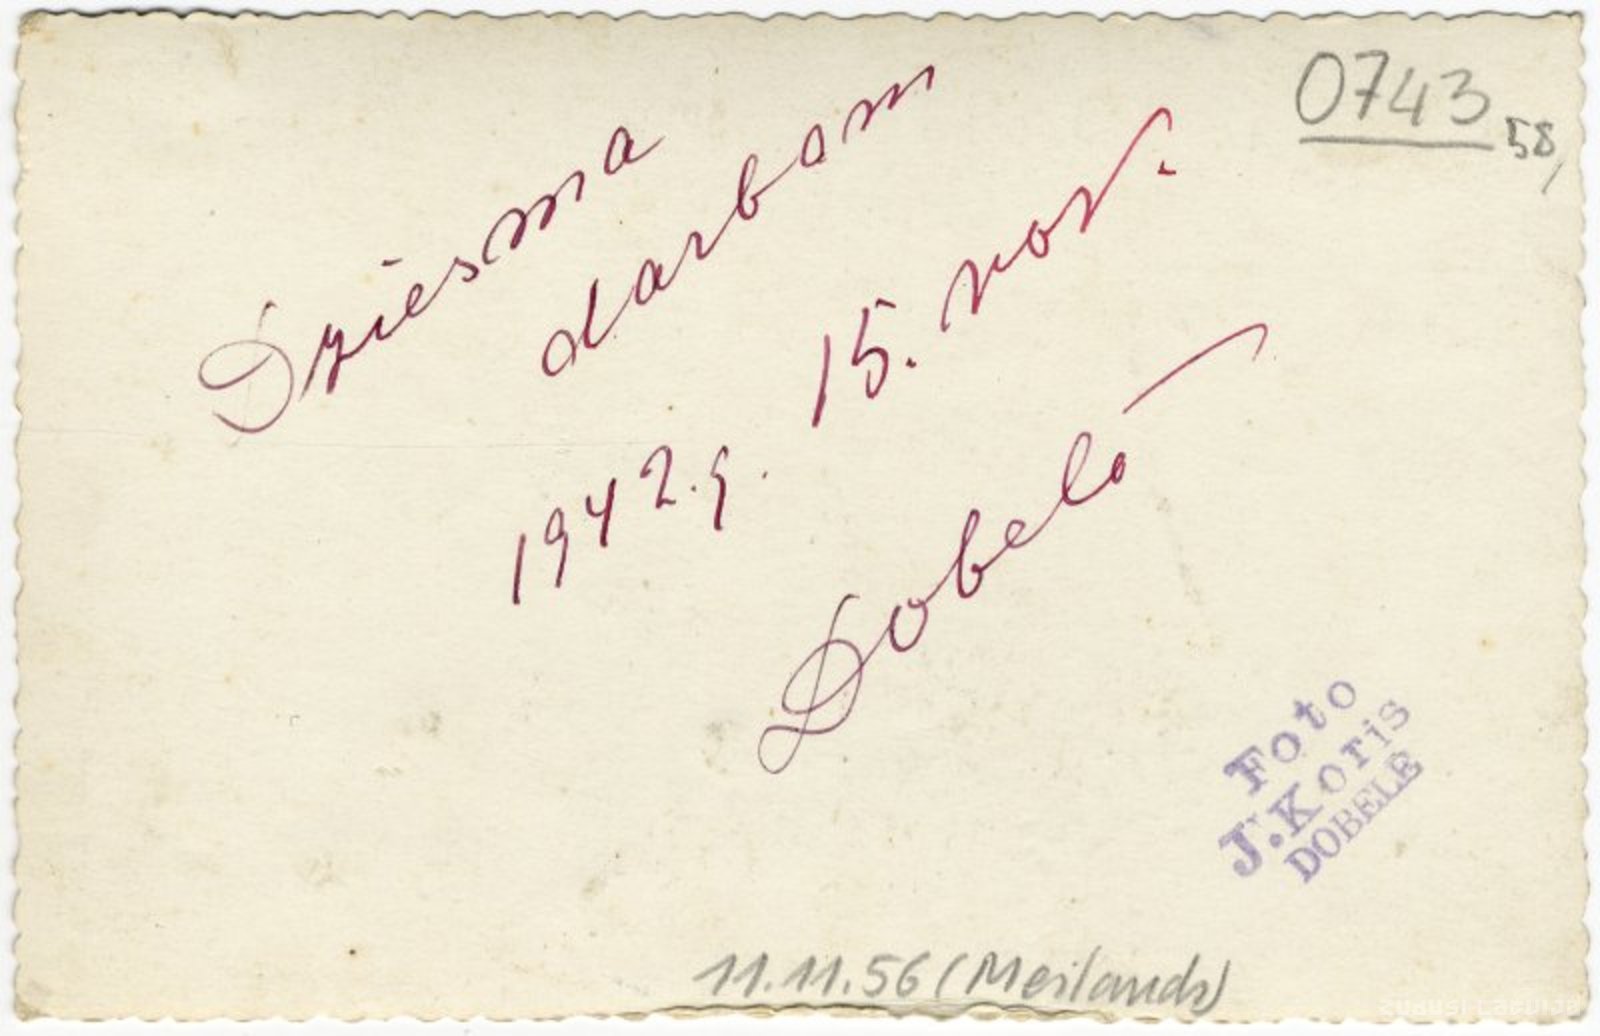 0743
58,
Dziesma
darbam
1942.g. 15. nov.
Dobelē
Foto
J. Koris
DOBELĒ
11.11.56 (Meilands)
zudusi Latvija